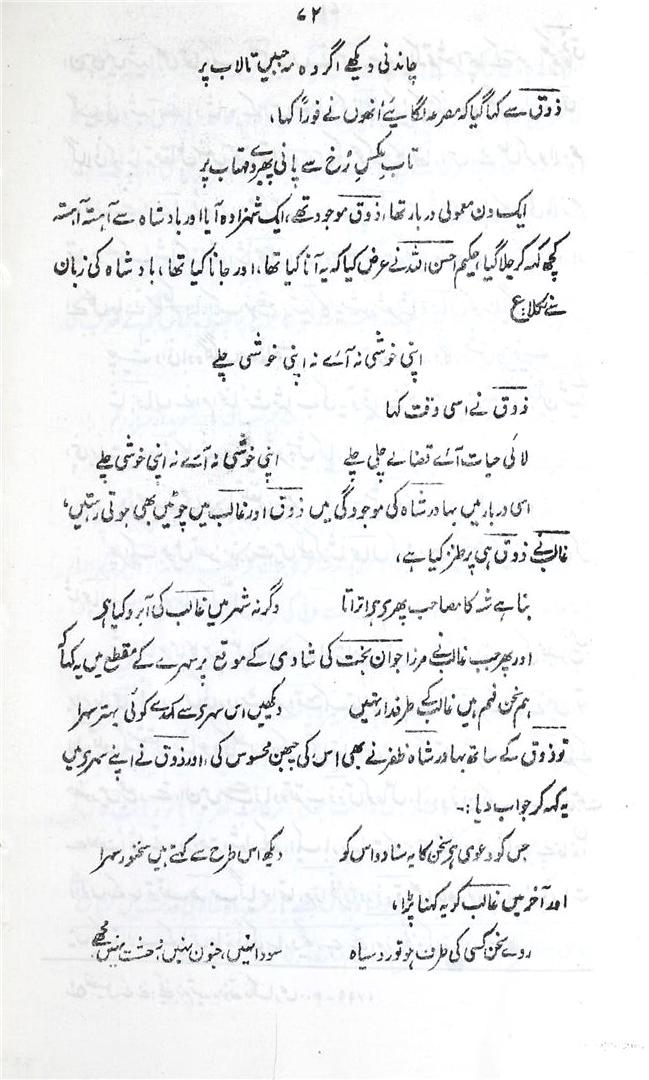 ۷۲
چاندنی دیکھے اگر وہ مہ جبیں تالاب پر
ذوق سے کہا گیا کہ مصرعہ لگائیے اُنھوں نے فوراً کہا،
تاب عکسِ رُخ سے پانی پھیر دے مہتاب پر
ایک دن معمولی دربار تھا، ذوق موجود تھے، ایک شہزادہ آیا اور بادشاہ سے آہستہ آہستہ
کچھ کہہ کر چلا گیا، حکیم احسن اللہ نے عرض کیا کہ یہ آنا کیا تھا، اور جانا کیا تھا، بادشاہ کی زبان
سے نکلا، ع
اپنی خوشی نہ آئے نہ اپنی خوشی چلے
ذوق نے اسی وقت کہا
لائی حیات آئے قضا لے چلی چلے اپنی خوشی نہ آئے نہ اپنی خوشی چلے
اسی دربار میں بہادر شاہ کی موجودگی میں ذوق اور غالب میں چوٹیں بھی ہوتی رہتیں،
غالب نے ذوق ہی پر طنز کیا ہے،
بنا ہے شہ کا مصاحب پھرے ہے اتراتا وگرنہ شہر میں غالب کی آبرو کیا ہے
اور پھر جب غالب نے مرزا جواں بخت کی شادی کے موقع پر سہرے کے مقطع میں یہ کہا کہ
ہم سخن فہم ہیں غالب کے طرفدار نہیں دیکھیں اس سہرے سے کہدے کوئی بہتر سہرا
تو ذوق کے ساتھ بہادر شاہ ظفر نے بھی اس کی چبھن محسوس کی، اور ذوق نے اپنے سہرے میں
یہ کہہ کر جواب دیا:۔
جس کو دعویٰ ہے سخن کا یہ سنا دو اس کو دیکھ اس طرح سے کہتے ہیں سخنور سہرا
اور آخر میں غالب کو یہ کہنا پڑا،
روئے سخن کسی کی طرف ہو تو رو سیاہ سودا نہیں، جنوں نہیں، وحشت نہیں مجھے